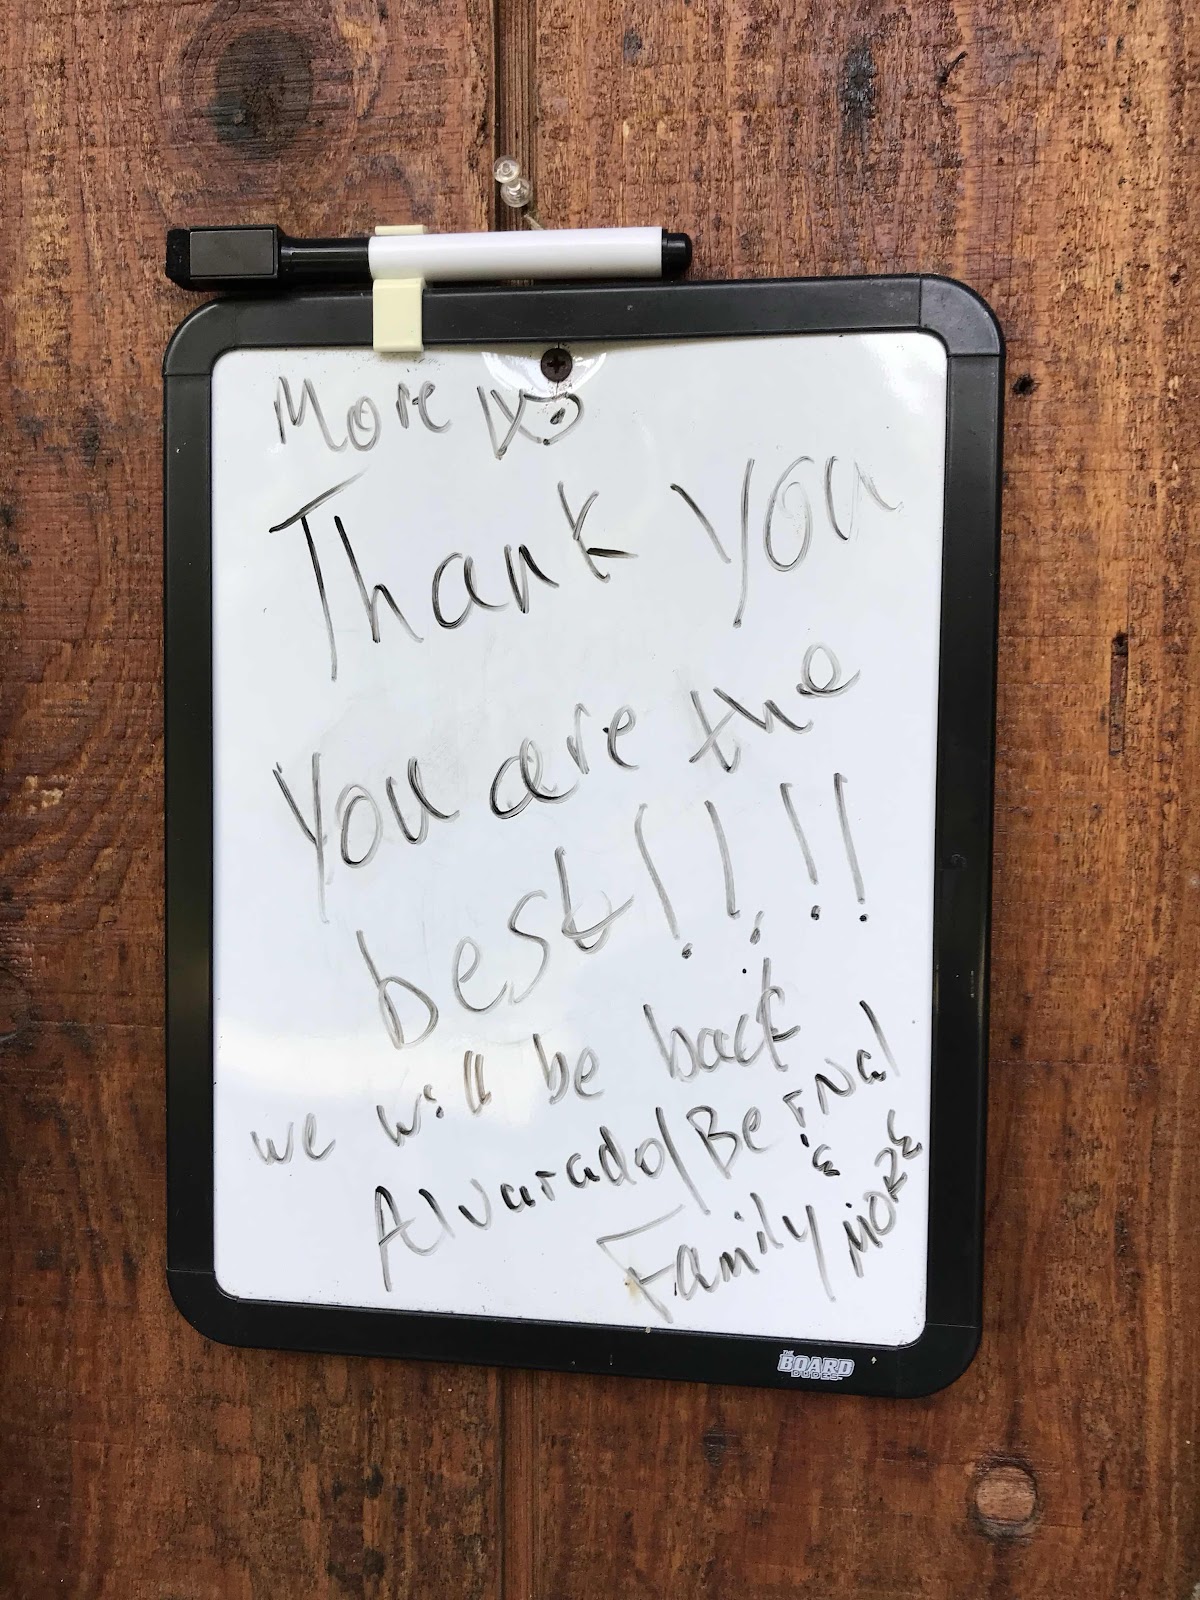 More
Thank you
You are the
best!!!!
we will be back
Alvarado/Bernal
Family & MORE
THE
BOARD
DUDES